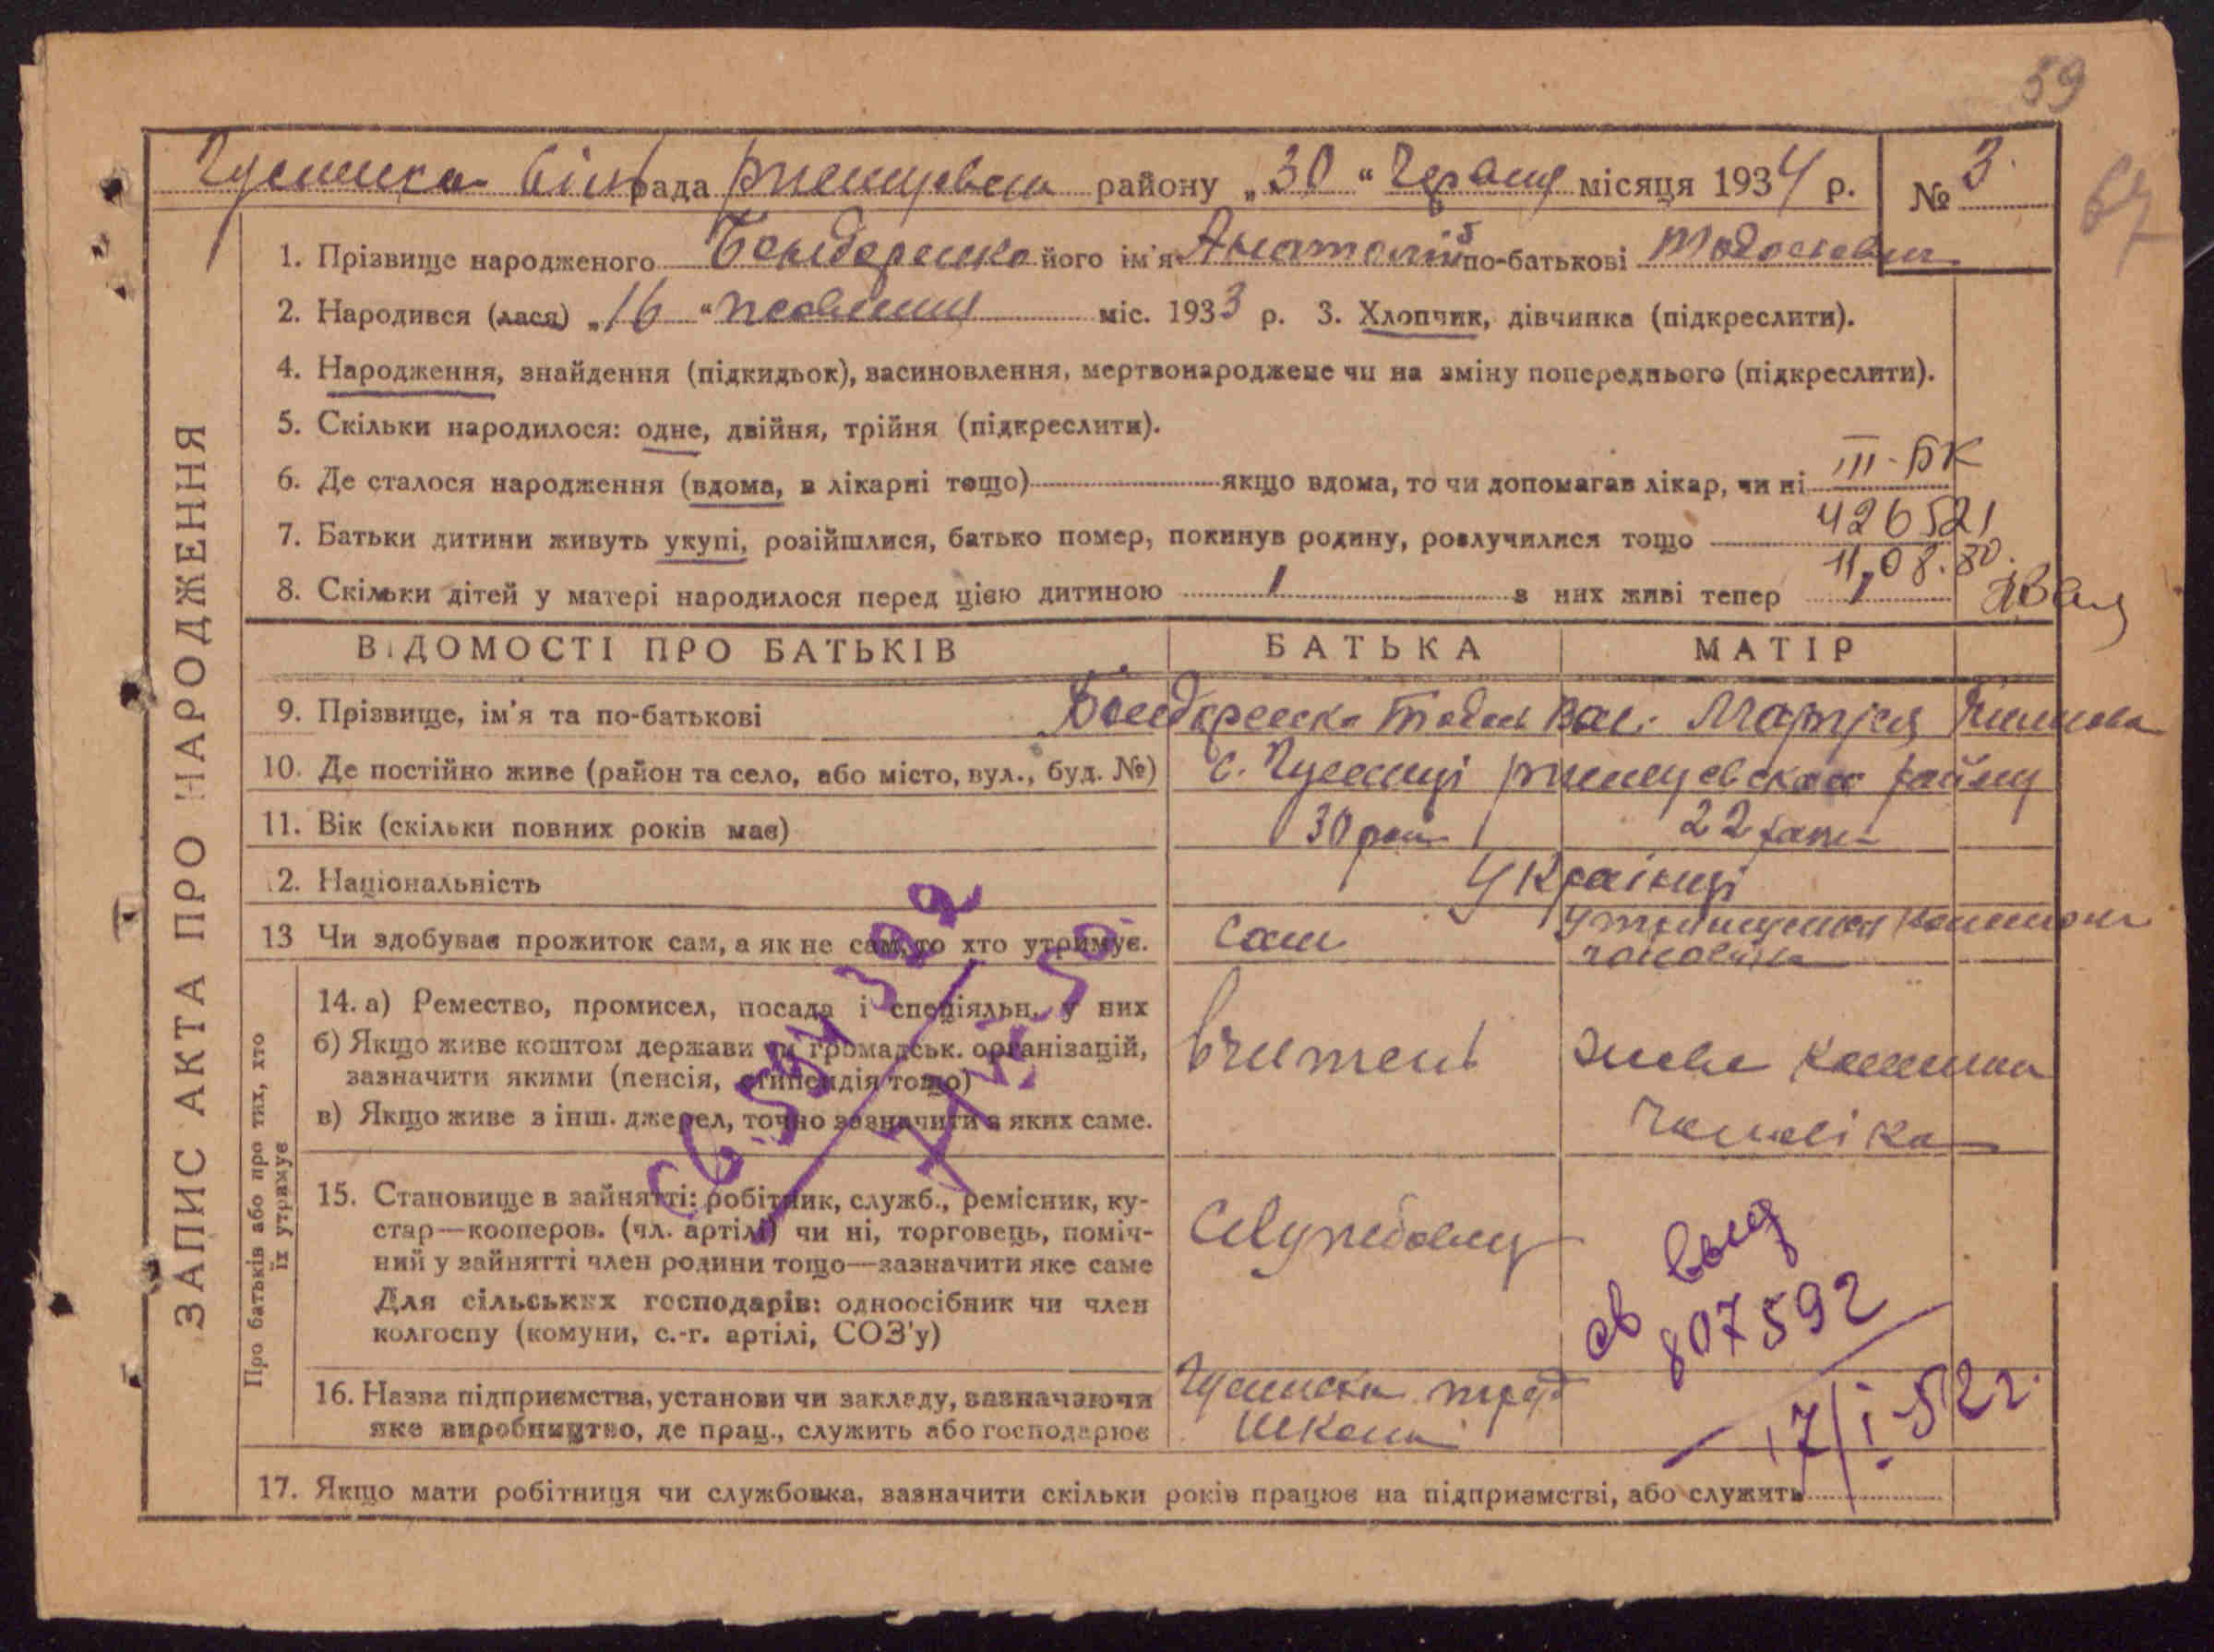 59
67
рада району „30“ Червня місяця 1934 р. № 3.
1. Прізвище народженого Бондаренко його ім'я Анатолій по-батькові Тодосьевич
2. Народився (лася) „16“ жовтня міс. 1933 р. 3. Хлопчик, дівчинка (підкреслити).
4. Народження, знайдення (підкидьок), васиновлення, мертвонароджене чи на зміну попереднього (підкреслити).
5. Скільки народилося: одне, двійня, трійня (підкреслити).
6. Де сталося народження (вдома, в лікарні тощо) якщо вдома, то чи допомагав лікар, чи ні
III-БК
426521
11.08.80.
7. Батьки дитини живуть укупі, розійшлися, батько помер, покинув родину, розлучилися тощо
8. Скільки дітей у матері народилося перед цією дитиною 1 з них живі тепер 1
ВІДОМОСТІ ПРО БАТЬКІВ БАТЬКА МАТІР
9. Прізвище, ім'я та по-батькові Бондаренко Тодось Вас. Марфа
10. Де постійно живе (район та село, або місто, вул., буд. №) с.
11. Вік (скільки повних років має) 30 рок 22
12. Національність Українці
13 Чи здобуває прожиток сам, а як не сам, то хто утримує. сам
чоловіка
14. а) Ремество, промисел, посада і спеціяльн. у них
б) Якщо живе коштом держави чи громадськ. організацій,
зазначити якими (пенсія, стипендія тощо)
в) Якщо живе з інш. джерел, точно зазначити з яких саме.
вчитель
живе коштом
чоловіка
15. Становище в зайнятті: робітник, служб., ремісник, ку-
стар—кооперов. (чл. артілі) чи ні, торговець, поміч-
ний у зайнятті член родини тощо—зазначити яке саме
Для сільських господарів: одноосібник чи член
колгоспу (комуни, с.-г. артілі, СОЗ'у)
Службовец
св выд
807592
17/I-52г.
16. Назва підприємства, установи чи закладу, зазначаючи
яке виробництво, де прац., служить або господарює
школа
17. Якщо мати робітниця чи службовка, зазначити скільки років працює на підприємстві, або служить
ЗАПИС АКТА ПРО НАРОДЖЕННЯ
Про батьків або про тих, хто
їх утримує